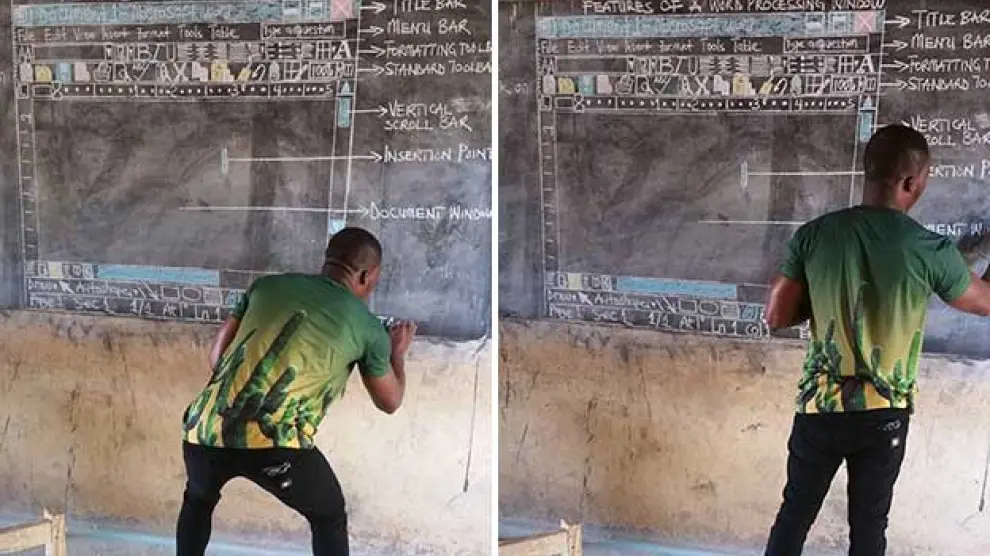 TITLE BAR
MENU BAR
File Edit View Insert format Tools Table
Type a question
FORMATTING TOOLBA
STANDARD TOOLBA
VERTICAL
SCROLL BAR
INSERTION POINT
DOCUMENT WINDOW
Draw AutoShapes
PAGE SEC 1 1/1
FEATURES OF A WORD PROCESSING WINDOW
TITLE BAR
MENU BAR
File Edit View Insert format Tools Table
Type a question
FORMATTING T
STANDARD TOOL
VERTICAL
SCROLL BAR
ERTION PO
UMENT WIN
Draw AutoShapes
PAGE 1 SEC 1 1/1 AT 1 Ln